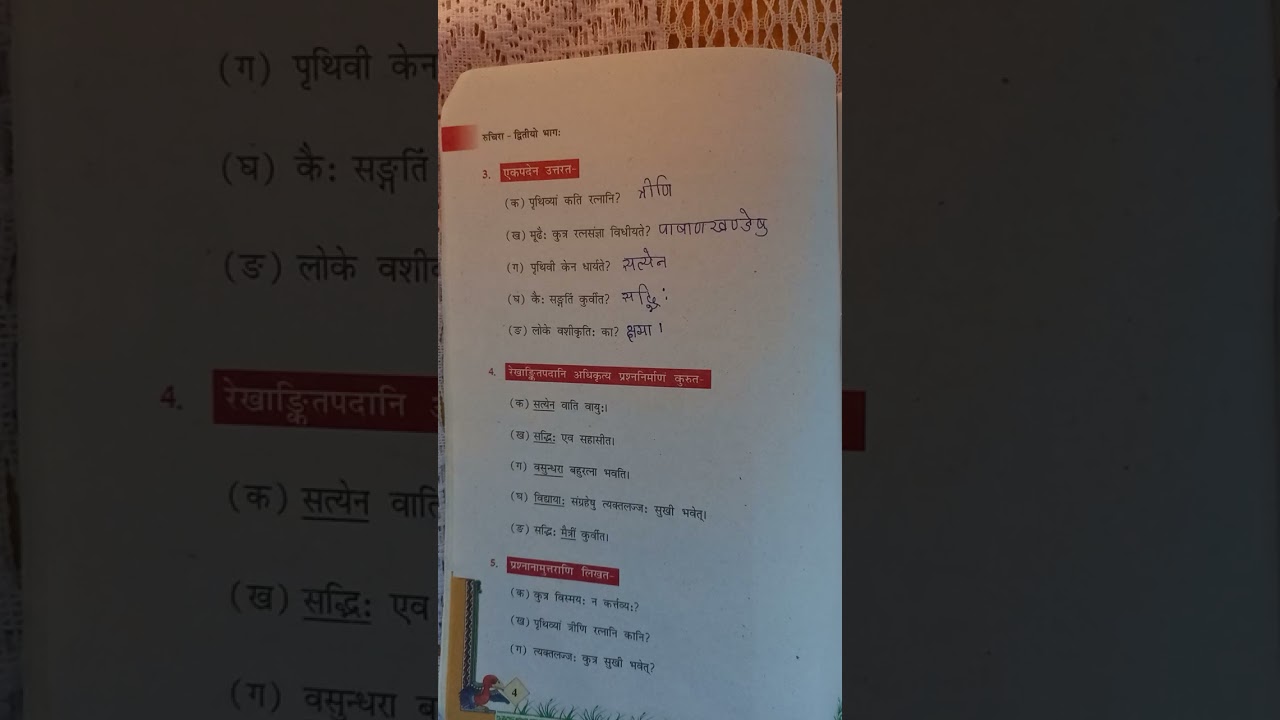 रुचिरा - द्वितीयो भागः
3. एकपदेन उत्तरत-
(क) पृथिव्यां कति रत्नानि? त्रीणि
(ख) मूढैः कुत्र रत्नसंज्ञा विधीयते? पाषाणखण्डेषु
(ग) पृथिवी केन धार्यते? सत्येन
(घ) कैः सङ्गतिं कुर्वीत? सद्भिः
(ङ) लोके वशीकृतिः का? क्षमा।
4. रेखाङ्कितपदानि अधिकृत्य प्रश्ननिर्माणं कुरुत-
(क) सत्येन वाति वायुः।
(ख) सद्भिः एव सहासीत।
(ग) वसुन्धरा बहुरत्ना भवति।
(घ) विद्यायाः संग्रहेषु त्यक्तलज्जः सुखी भवेत्।
(ङ) सद्भिः मैत्रीं कुर्वीत।
5. प्रश्नानामुत्तराणि लिखत-
(क) कुत्र विस्मयः न कर्त्तव्यः?
(ख) पृथिव्यां त्रीणि रत्नानि कानि?
(ग) त्यक्तलज्जः कुत्र सुखी भवेत्?
4
(ग) पृथिवी केन
(घ) कैः सङ्गतिं
(ङ) लोके वशी
4. रेखाङ्कितपदानि
(क) सत्येन वाति
(ख) सद्भिः एव
(ग) वसुन्धरा ब